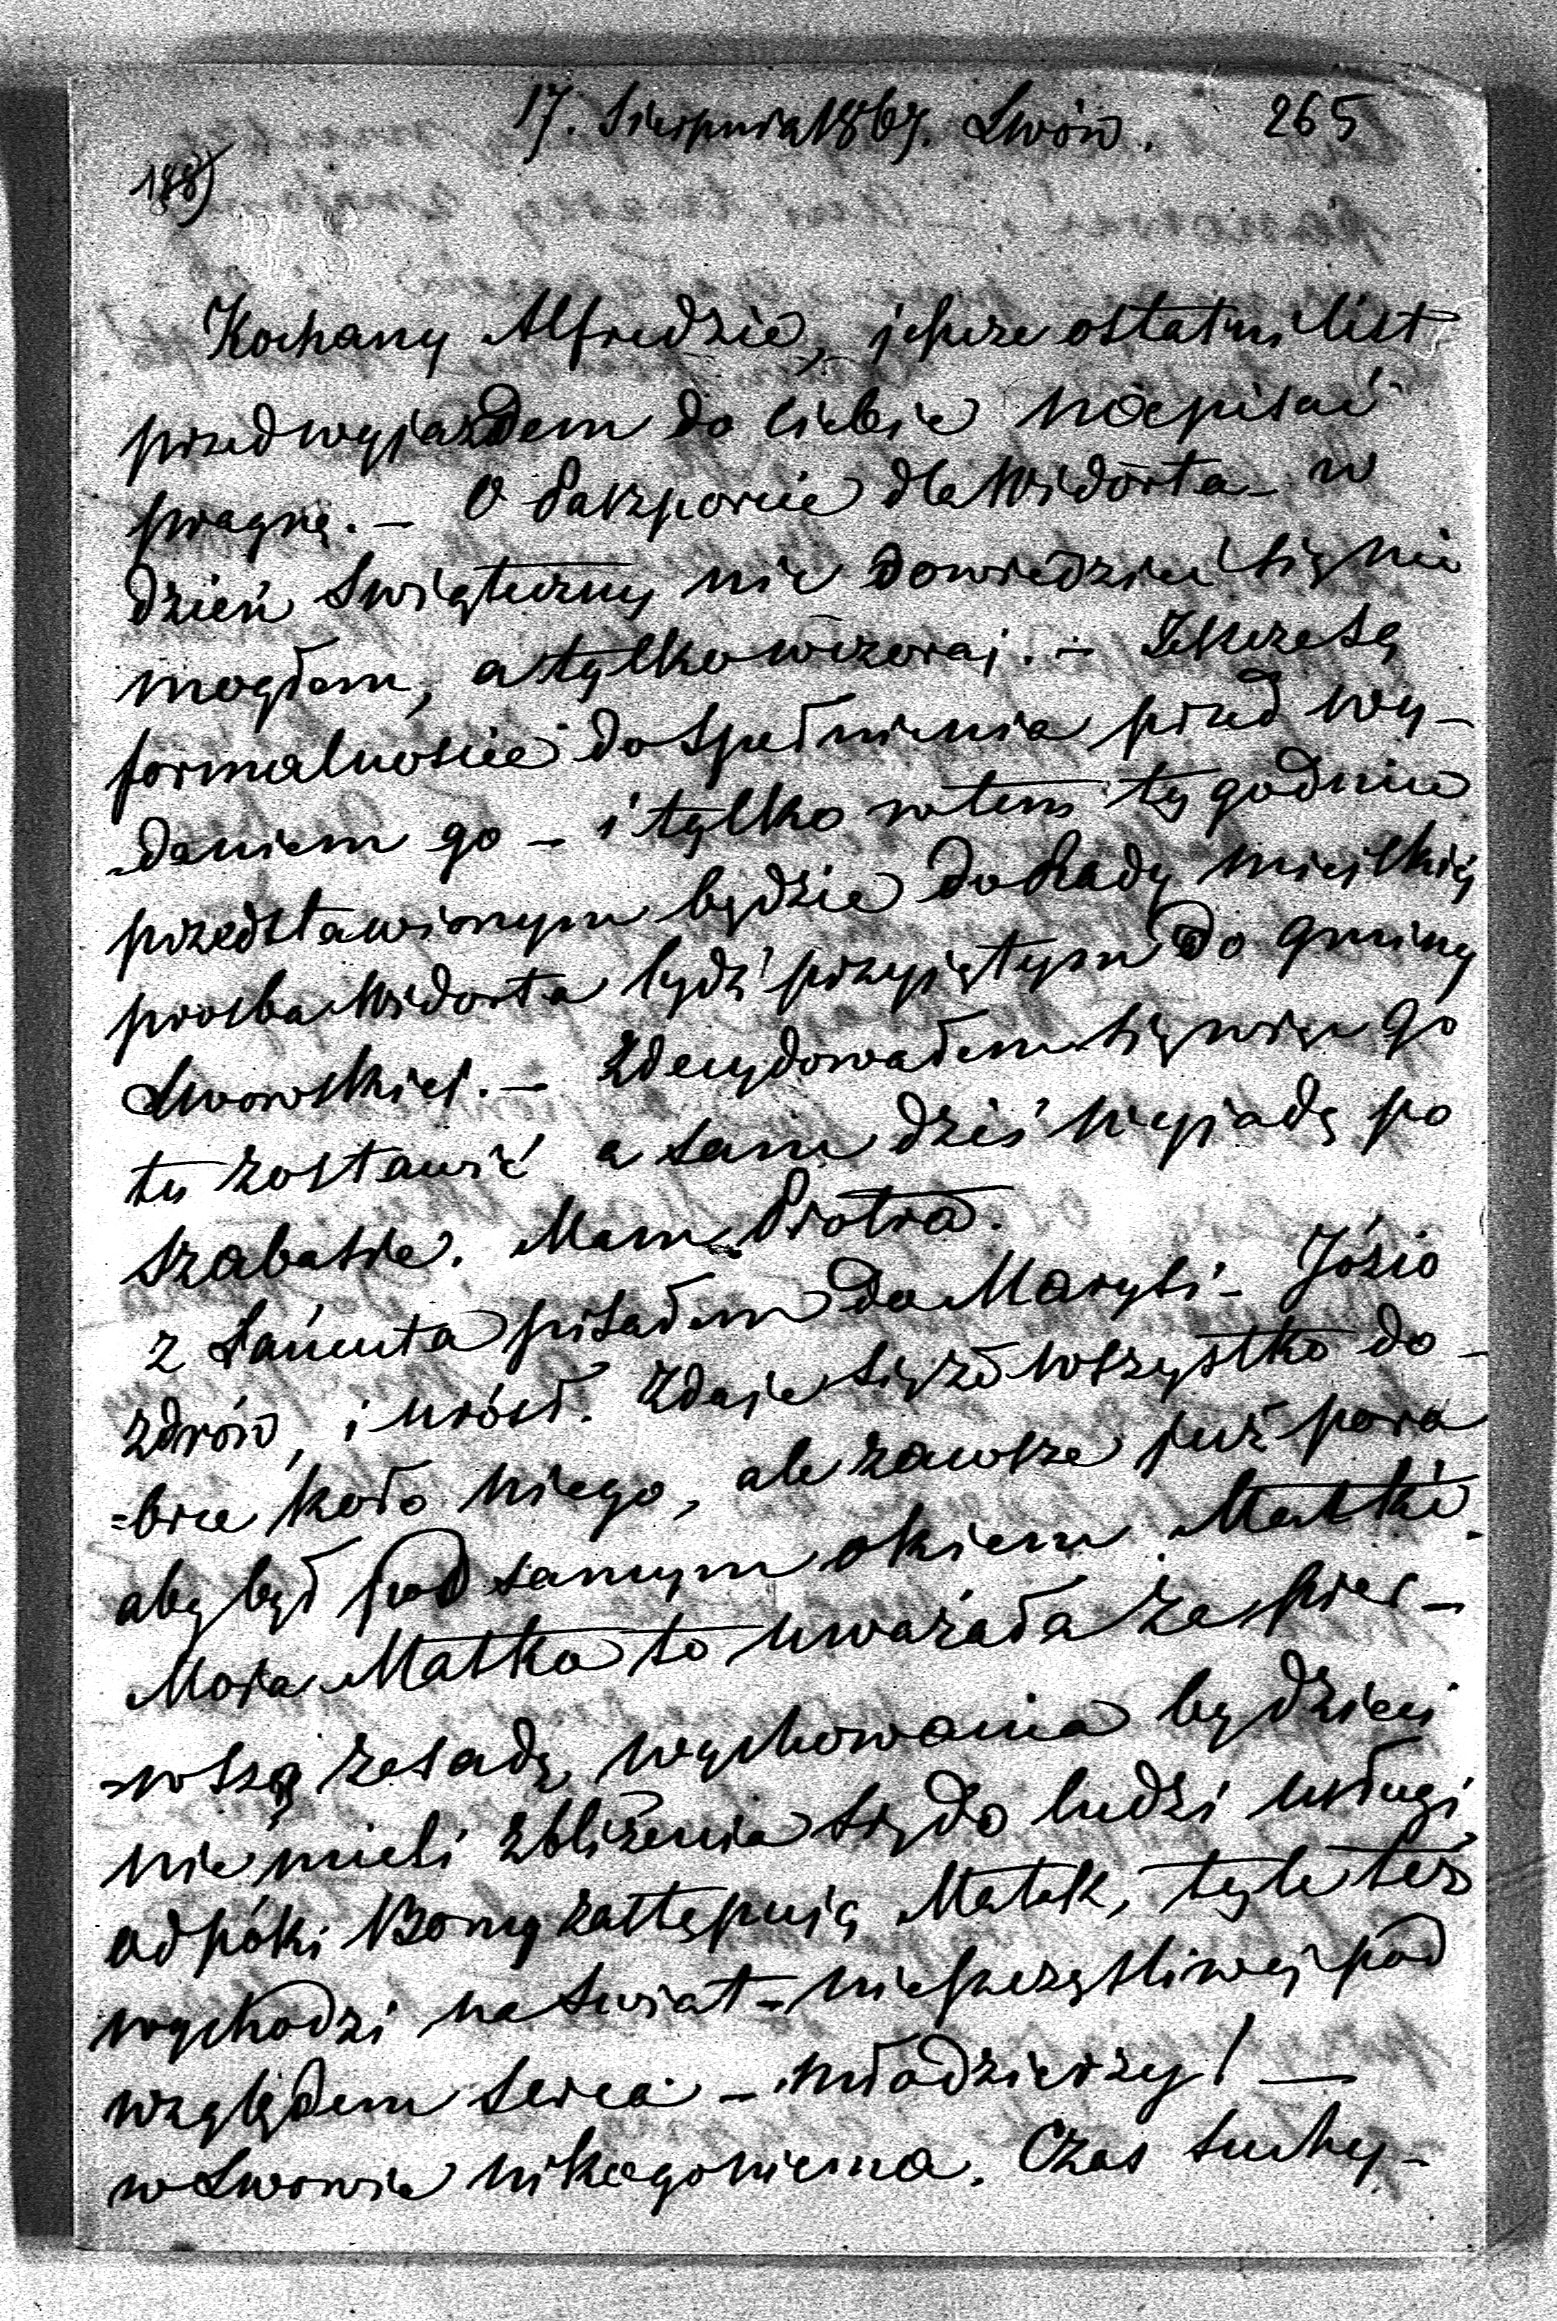 17. Sierpnia 1867. Lwów. 265
188)
Kochany Alfredzie, jeszcze ostatni list
przed wyjazdem do ciebie napisać
pragnę. – O Paszporcie dla Widorta – w
dzień Swiąteczny nic dowiedzieć się nie
mogłem, a tylko wczoraj. – Jeszcze są
formalności do spełnienia przed wy-
-daniem go – i tylko w tem tygodniu
przedstawionym będzie do Rady miejskiej
prosba Widorta bydź przyjętym do gminy
Lwowskiej. – Zdecydowałem się więc go
tu zostawić a sam dziś wyjadę po
szabasie. Mam Piotra.
z Łańcuta pisałem do Marysi – Józio
zdrów, i urósł. Zdaje się że wszystko do-
=brze koło niego, ale zawsze już pora
aby był pod samym okiem Matki.
Moja Matka to uważała za pier-
=wszą zasadę wychowania by dzieci
nie mieli zbliżenia się do ludzi usługi
odpóki Bony zastępują Matek, tyle też
wychodzi na swiat – nieszczęśliwej pod
względem serca – młodzierzy! —
w Lwowie nikogo niema. Czas suchy –